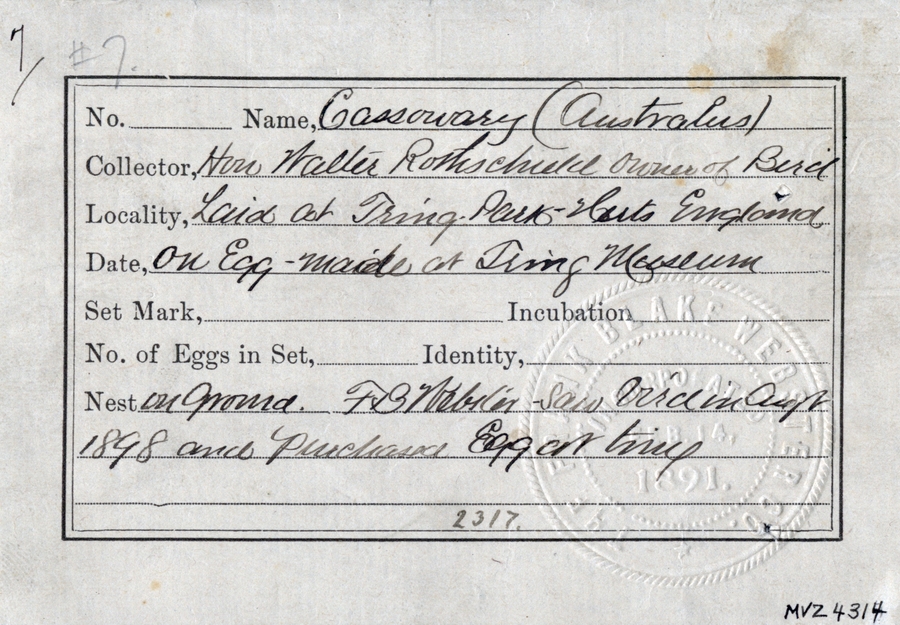 7/ #7.
No. Name, Cassowary (Australus)
Collector, Hon Walter Rothschild owner of Bird
Locality, Laid at Tring Park - Herts England
Date, on Egg - made at Tring Museum
Set Mark, Incubation
No. of Eggs in Set, Identity,
Nest on Ground. F B Webster saw Bird in Augt
1898 and Purchased Egg at time
2317.
FRANK BLAKE WEBSTER CO.
INCORPORATED
FEB. 14,
1891.
MVZ 4314